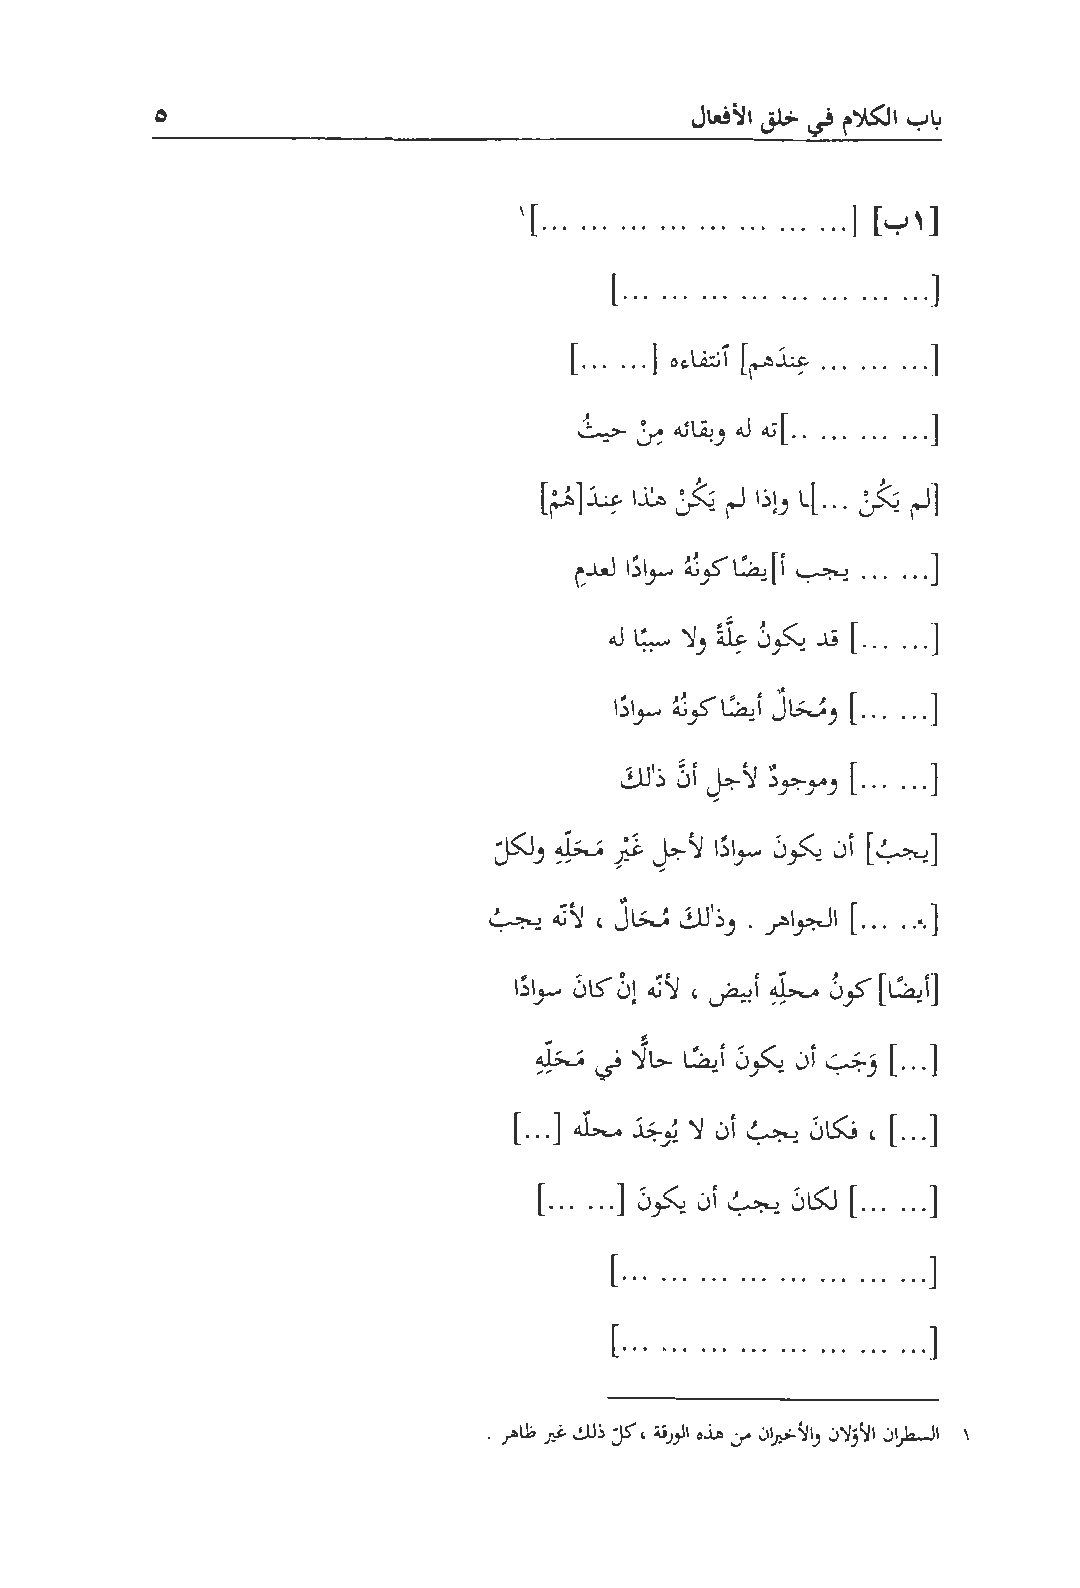 باب الكلام في خلق الأفعال ٥
[١ب] [... ... ... ... ... ... ... ...]١
[... ... ... ... ... ... ... ...]
[... ... ... عِندَهم] ٱنتفاءه [... ...]
[... ... ... ..]ته له وبقائه مِنْ حيثُ
[لم يَكُنْ ...]ـا وإذا لم يَكُنْ هـٰذا عِندَ[هُمْ]
[... ... يجب أ]يضًا كونُهُ سوادًا لعدمِ
[... ...] قد يكونُ عِلَّةً ولا سببًا له
[... ...] ومُحَالٌ أيضًا كونُهُ سوادًا
[... ...] وموجودٌ لأجلِ أنَّ ذٰلكَ
[يجبُ] أن يكونَ سوادًا لأجلِ غَيْرِ مَحَلِّهِ ولكلّ
[... ...] الجواهر . وذٰلكَ مُحَالٌ ، لأنّه يجبُ
[أيضًا] كونُ محلِّهِ أبيض ، لأنّه إنْ كانَ سوادًا
[...] وَجَبَ أن يكونَ أيضًا حالًّا في مَحَلِّهِ
[...] ، فكانَ يجبُ أن لا يُوجَدَ محلّه [...]
[... ...] لكانَ يجبُ أن يكونَ [... ...]
[... ... ... ... ... ... ... ...]
[... ... ... ... ... ... ... ...]
١ السطران الأوّلان والأخيران من هذه الورقة ، كلّ ذلك غير ظاهر .